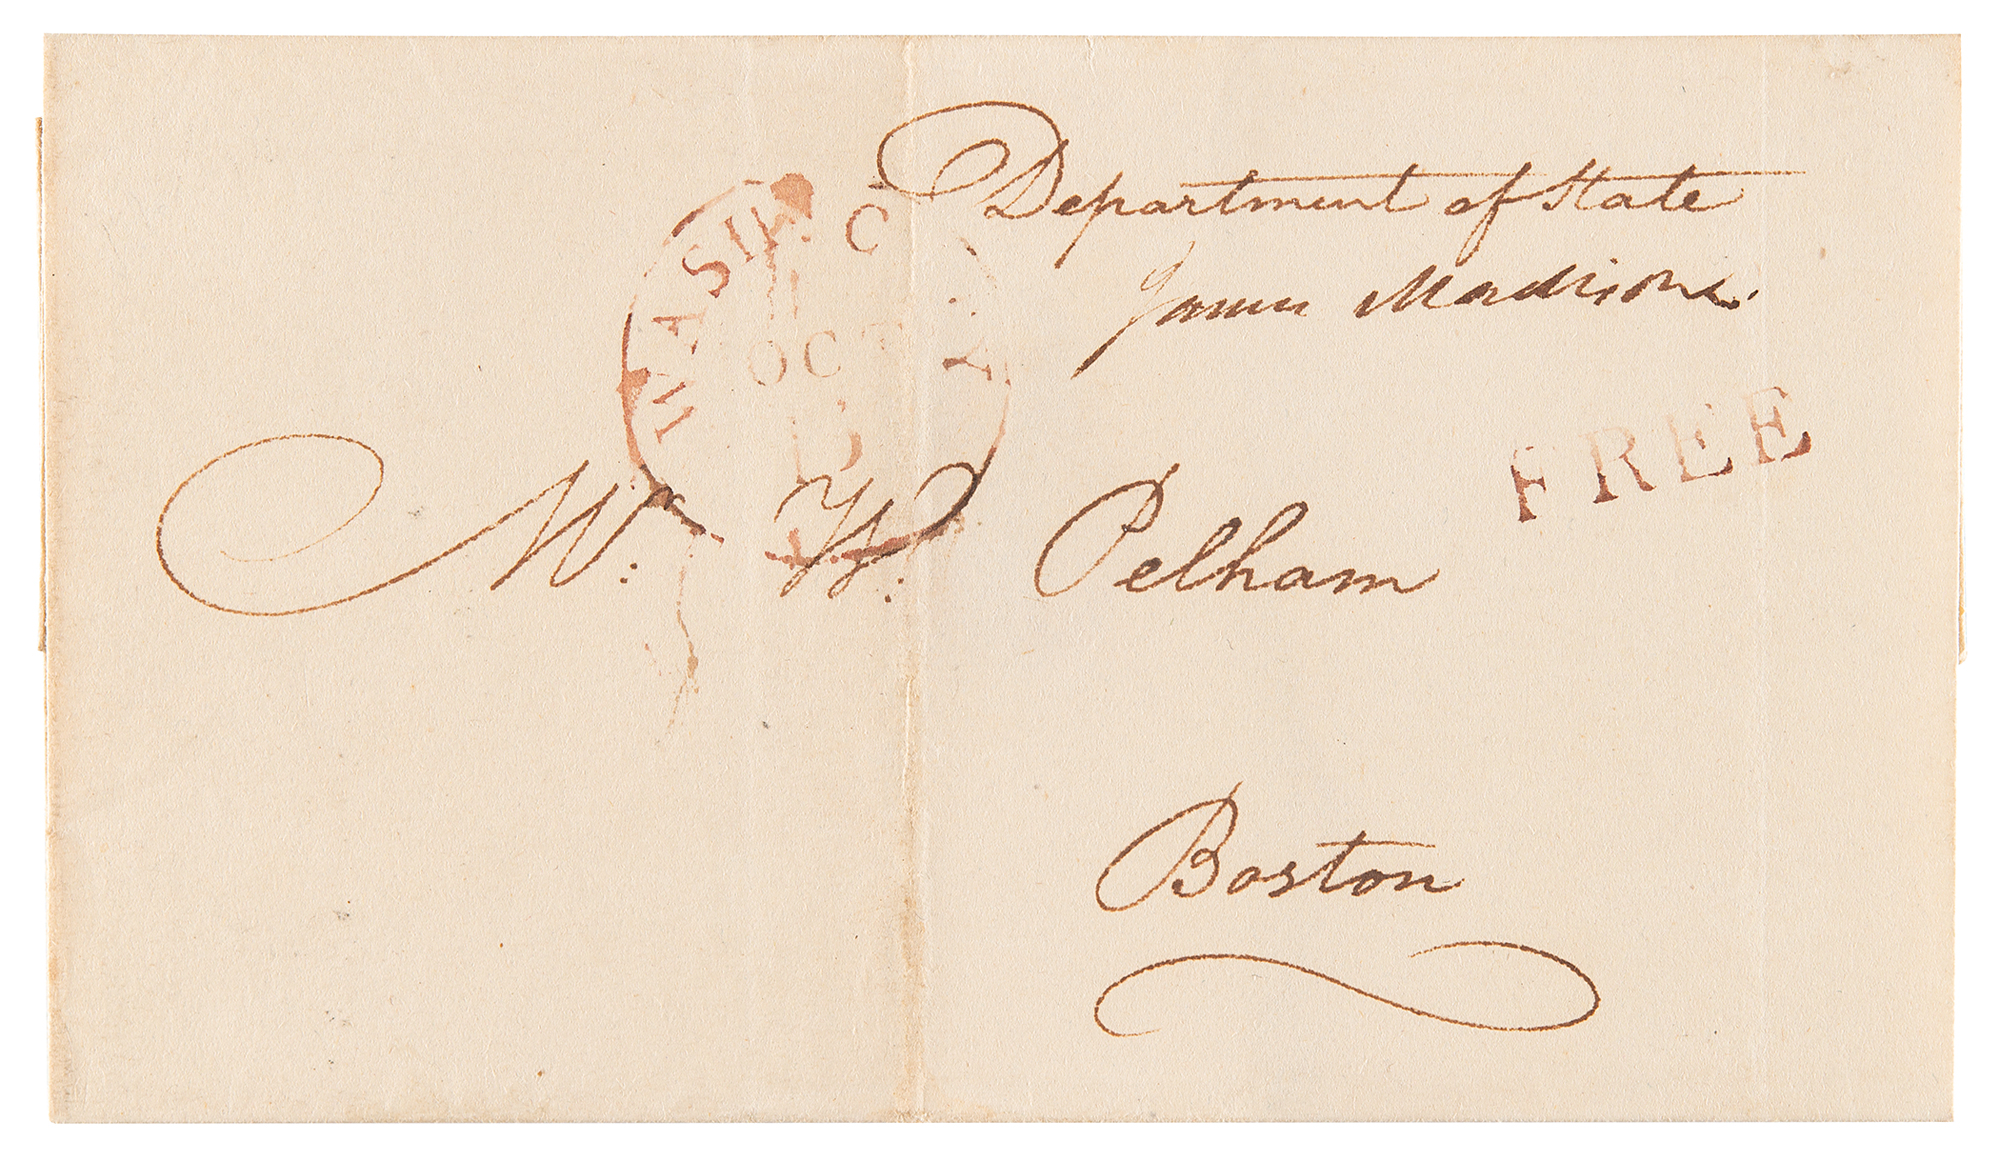 Department of State
James Madison
WASH. C
OCT
13
FREE
Mr. W. Pelham
Boston